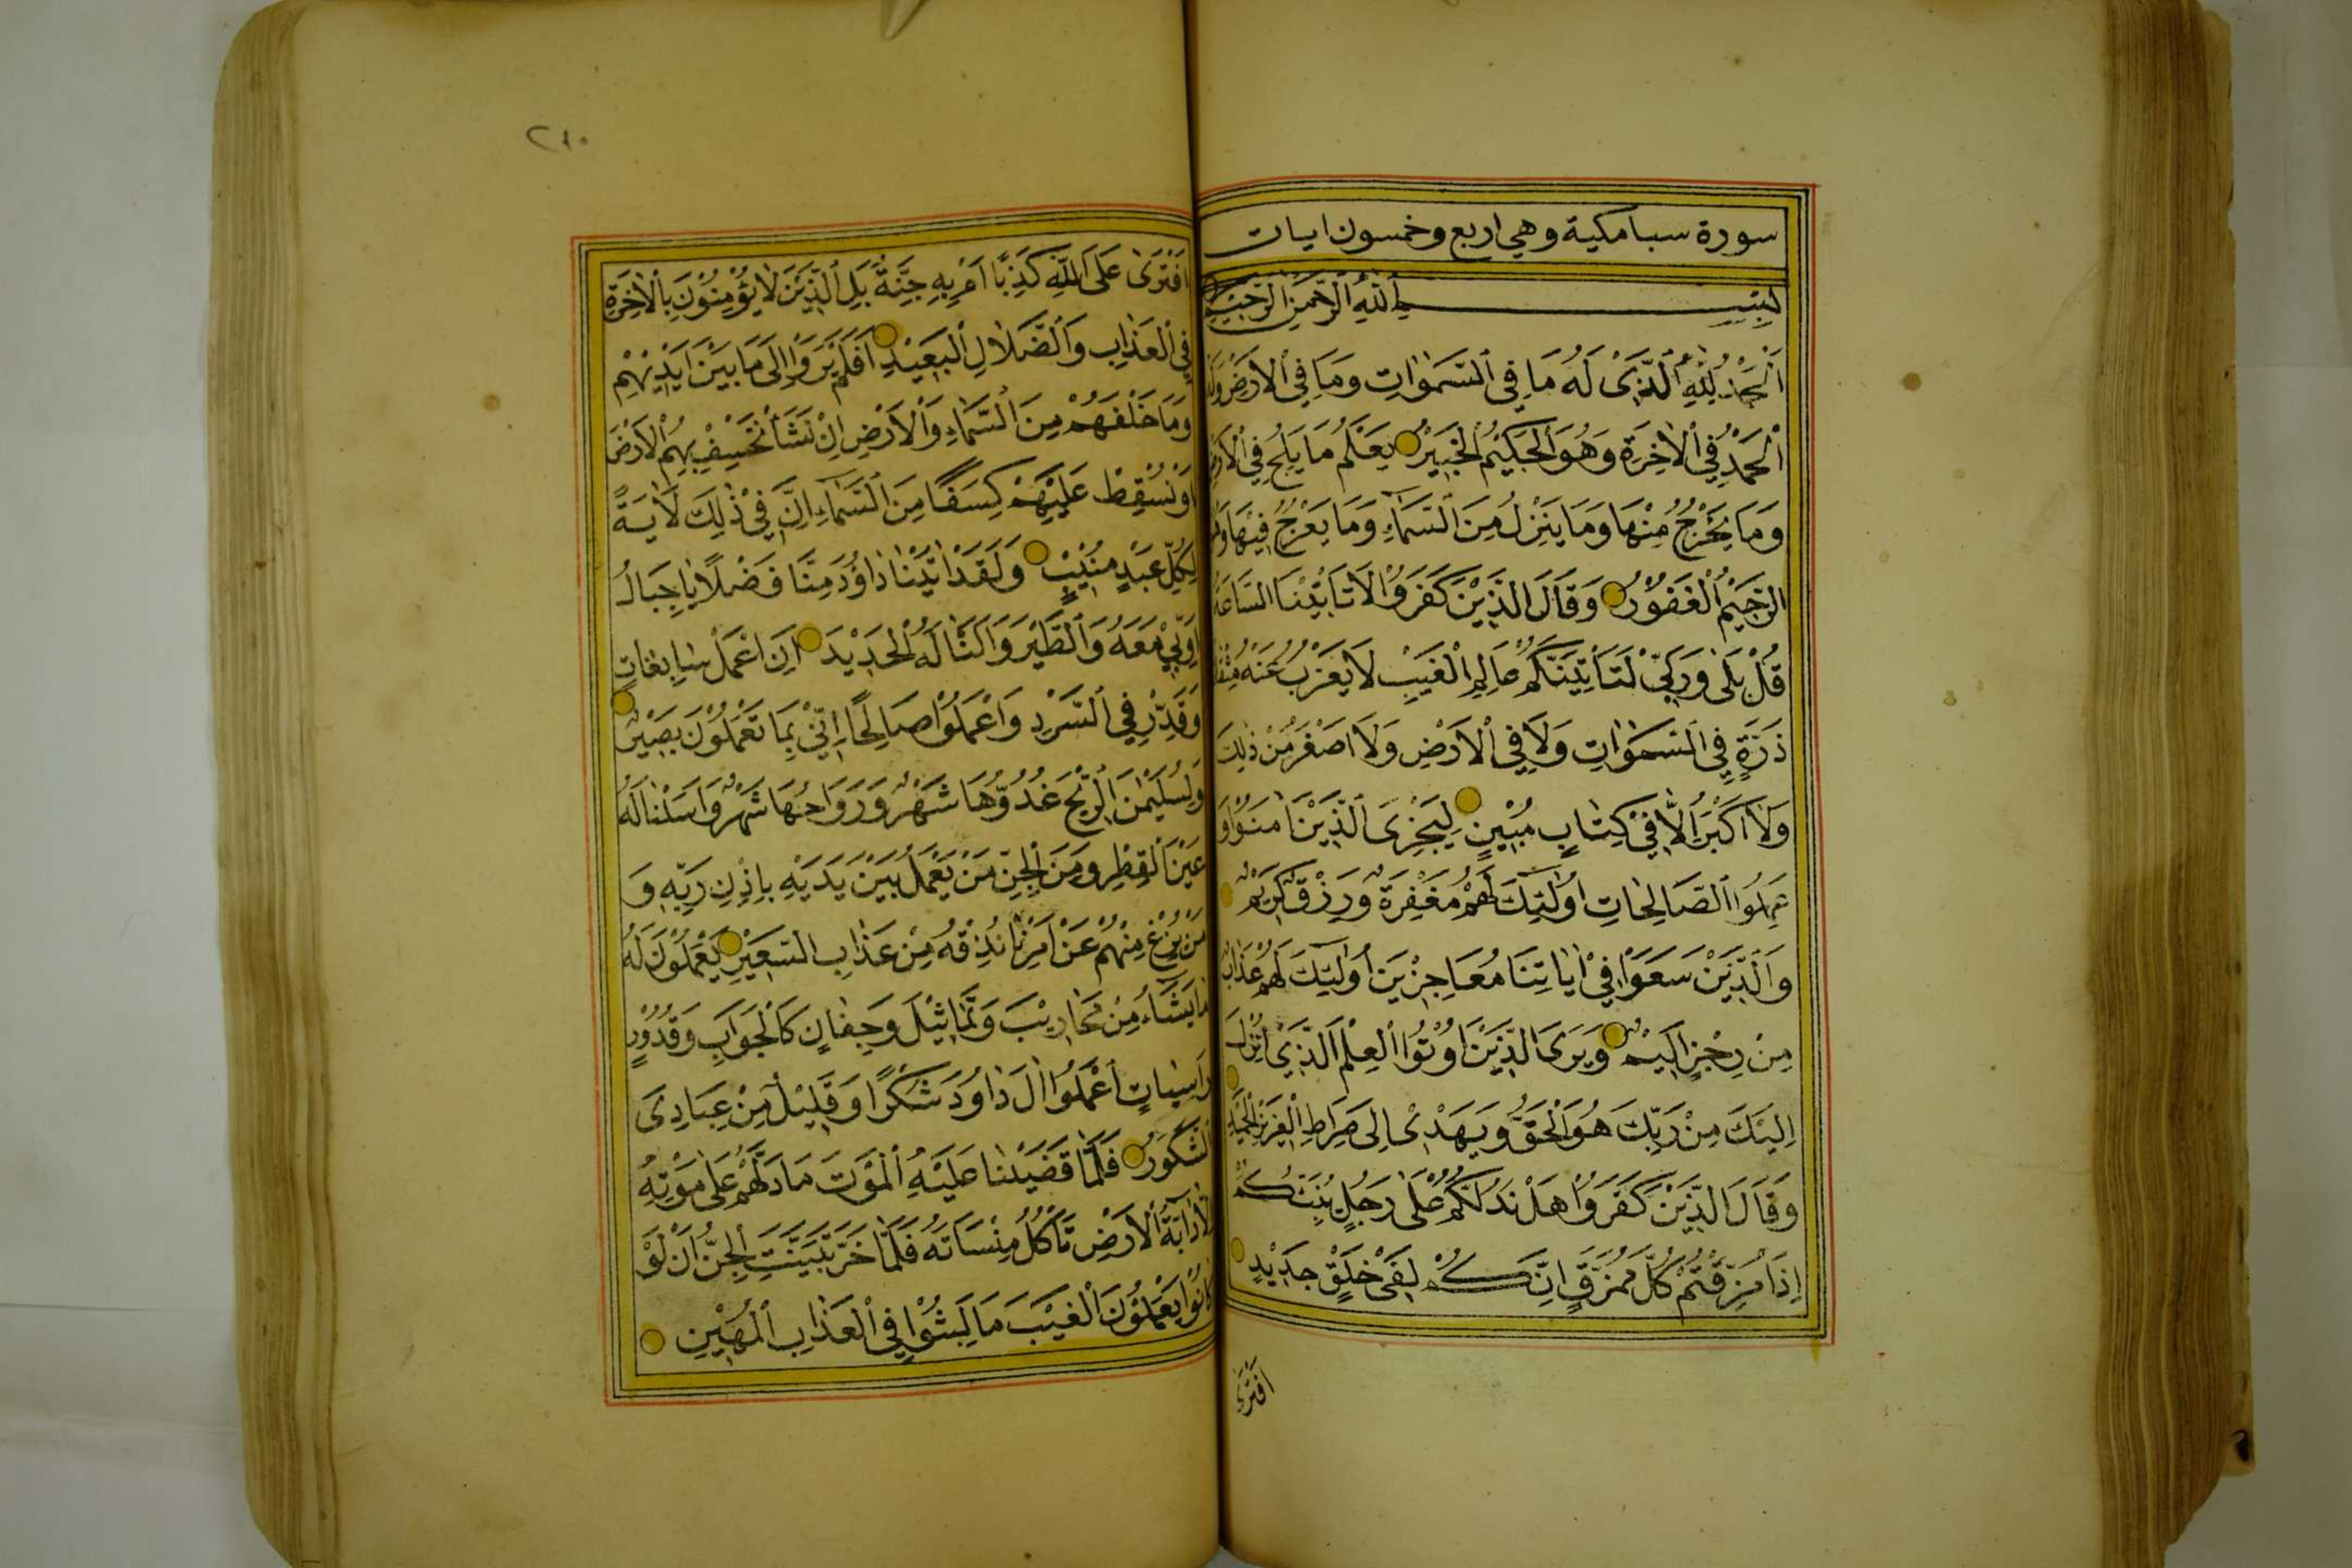 سورة سبا مكية وهي اربع وخمسون ايات
بِسْمِ اللّٰهِ الرَّحْمٰنِ الرَّحِيمِ
اَلْحَمْدُ لِلّٰهِ الَّذِى لَهُ مَا فِى السَّمٰوَاتِ وَمَا فِى الْاَرْضِ وَلَهُ
الْحَمْدُ فِى الْاٰخِرَةِ وَهُوَ الْحَكِيْمُ الْخَبِيْرُ يَعْلَمُ مَا يَلِجُ فِى الْاَرْضِ
وَمَا يَخْرُجُ مِنْهَا وَمَا يَنْزِلُ مِنَ السَّمَاءِ وَمَا يَعْرُجُ فِيْهَا وَهُوَ
الرَّحِيْمُ الْغَفُوْرُ وَقَالَ الَّذِيْنَ كَفَرُوْا لَا تَاْتِيْنَا السَّاعَةُ
قُلْ بَلٰى وَرَبِّىْ لَتَاْتِيَنَّكُمْ عَالِمِ الْغَيْبِ لَا يَعْزُبُ عَنْهُ مِثْقَالُ
ذَرَّةٍ فِى السَّمٰوَاتِ وَلَا فِى الْاَرْضِ وَلَا اَصْغَرُ مِنْ ذٰلِكَ
وَلَا اَكْبَرُ اِلَّا فِىْ كِتَابٍ مُبِيْنٍ لِيَجْزِىَ الَّذِيْنَ اٰمَنُوْا وَ
عَمِلُوا الصَّالِحَاتِ اُولٰئِكَ لَهُمْ مَغْفِرَةٌ وَرِزْقٌ كَرِيْمٌ
وَالَّذِيْنَ سَعَوْا فِىْ اٰيَاتِنَا مُعَاجِزِيْنَ اُولٰئِكَ لَهُمْ عَذَابٌ
مِنْ رِجْزٍ اَلِيْمٌ وَيَرَى الَّذِيْنَ اُوْتُوا الْعِلْمَ الَّذِىْ اُنْزِلَ
اِلَيْكَ مِنْ رَبِّكَ هُوَ الْحَقَّ وَيَهْدِىْ اِلٰى صِرَاطِ الْعَزِيْزِ الْحَمِيْدِ
وَقَالَ الَّذِيْنَ كَفَرُوْا هَلْ نَدُلُّكُمْ عَلٰى رَجُلٍ يُنَبِّئُكُمْ
اِذَا مُزِّقْتُمْ كُلَّ مُمَزَّقٍ اِنَّكُمْ لَفِىْ خَلْقٍ جَدِيْدٍ
افترى
٢١٠
اَفْتَرٰى عَلَى اللّٰهِ كَذِبًا اَمْ بِهِ جِنَّةٌ بَلِ الَّذِيْنَ لَا يُؤْمِنُوْنَ بِالْاٰخِرَةِ
فِى الْعَذَابِ وَالضَّلَالِ الْبَعِيْدِ اَفَلَمْ يَرَوْا اِلٰى مَا بَيْنَ اَيْدِيْهِمْ
وَمَا خَلْفَهُمْ مِنَ السَّمَاءِ وَالْاَرْضِ اِنْ نَشَأْ نَخْسِفْ بِهِمُ الْاَرْضَ
اَوْ نُسْقِطْ عَلَيْهِمْ كِسَفًا مِنَ السَّمَاءِ اِنَّ فِىْ ذٰلِكَ لَاٰيَةً
لِكُلِّ عَبْدٍ مُنِيْبٍ وَلَقَدْ اٰتَيْنَا دَاوُدَ مِنَّا فَضْلًا يَا جِبَالُ
اَوِّبِىْ مَعَهُ وَالطَّيْرَ وَاَلَنَّا لَهُ الْحَدِيْدَ اَنِ اعْمَلْ سَابِغَاتٍ
وَقَدِّرْ فِى السَّرْدِ وَاعْمَلُوْا صَالِحًا اِنِّىْ بِمَا تَعْمَلُوْنَ بَصِيْرٌ
وَلِسُلَيْمٰنَ الرِّيْحَ غُدُوُّهَا شَهْرٌ وَرَوَاحُهَا شَهْرٌ وَاَسَلْنَا لَهُ
عَيْنَ الْقِطْرِ وَمِنَ الْجِنِّ مَنْ يَعْمَلُ بَيْنَ يَدَيْهِ بِاِذْنِ رَبِّهِ وَ
مَنْ يَزِغْ مِنْهُمْ عَنْ اَمْرِنَا نُذِقْهُ مِنْ عَذَابِ السَّعِيْرِ يَعْمَلُوْنَ لَهُ
مَا يَشَاءُ مِنْ مَحَارِيْبَ وَتَمَاثِيْلَ وَجِفَانٍ كَالْجَوَابِ وَقُدُوْرٍ
رَاسِيَاتٍ اعْمَلُوْا اٰلَ دَاوُدَ شُكْرًا وَقَلِيْلٌ مِنْ عِبَادِىَ
الشَّكُوْرُ فَلَمَّا قَضَيْنَا عَلَيْهِ الْمَوْتَ مَا دَلَّهُمْ عَلٰى مَوْتِهِ
اِلَّا دَابَّةُ الْاَرْضِ تَأْكُلُ مِنْسَاَتَهُ فَلَمَّا خَرَّ تَبَيَّنَتِ الْجِنُّ اَنْ لَوْ
كَانُوْا يَعْلَمُوْنَ الْغَيْبَ مَا لَبِثُوْا فِى الْعَذَابِ الْمُهِيْنِ